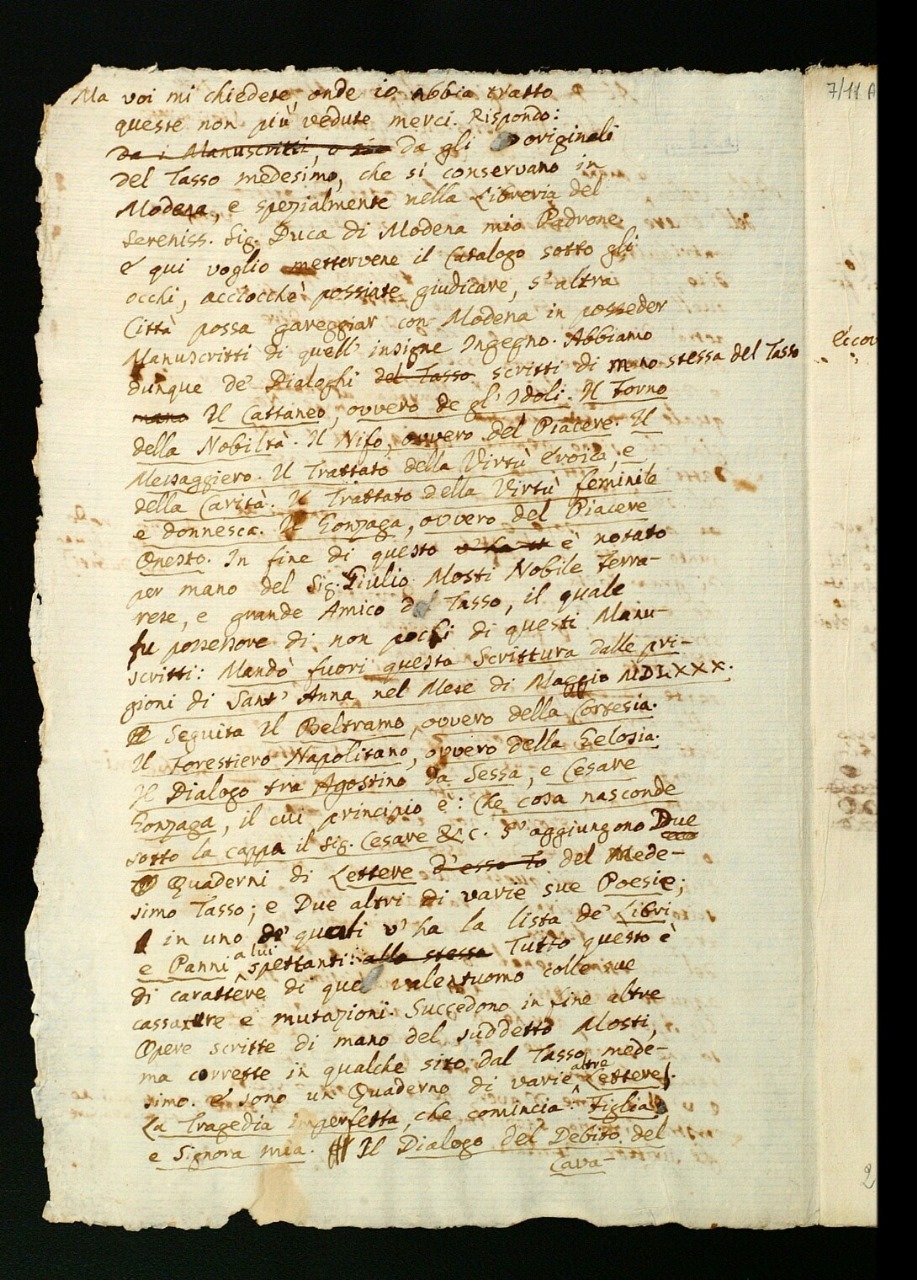 Ma voi mi chiedete, onde io abbia tratto
queste non più vedute merci. Rispondo:
da i Manuscritti, o sia da gli originali
del Tasso medesimo, che si conservano in
Modena, e spezialmente nella Libreria del
Sereniss. Sig. Duca di Modena mio Padrone
E qui voglio mettervene il Catalogo sotto gli
occhi, acciocchè possiate giudicare, s'altra
Città possa gareggiar con Modena in posseder
Manuscritti di quell' insigne Ingegno. Abbiamo
dunque de' Dialoghi del Tasso scritti di mano stessa del Tasso
mano Il Cattaneo, ovvero de gl' Idoli. Il Forno
della Nobiltà. Il Nifo, ovvero del Piacere. Il
Messaggiero. Il Trattato della Virtù Eroica, e
della Carità. Il Trattato della Virtù feminile
e donnesca. Il Gonzaga, ovvero del Piacere
Onesto. In fine di questo v'ha è notato
per mano del Sig. Giulio Mosti Nobile Ferra-
rese, e grande Amico del Tasso, il quale
fu possessore di non pochi di questi Manu-
scritti: Mandò fuori questa Scrittura dalle pri-
gioni di Sant' Anna nel Mese di Maggio MDLXXX.
Seguita Il Beltramo, ovvero della Cortesia.
Il Forestiero Napolitano, ovvero della Gelosia.
Il Dialogo tra Agostino da Sessa, e Cesare
Gonzaga, il cui principio è: Che cosa nasconde
sotto la cappa il Sig. Cesare &c. S'aggiungono Due
Quaderni di Lettere d'esso To del Mede-
simo Tasso; e Due altri di varie sue Poesie;
in uno de' quali v'ha la lista de' Libri
e Panni a lui spettanti: alla stessa Tutto questo è
di carattere di quel valentuomo colle sue
cassature e mutazioni. Succedono in fine altre
Opere scritte di mano del suddetto Mosti,
ma corrette in qualche sito dal Tasso mede-
simo. E sono un Quaderno di varie altre Lettere.
La Tragedia imperfetta, che comincia: Figlia
e Signora mia. Il Dialogo del Debito del
Cava-
7/11 A
Eccov
2